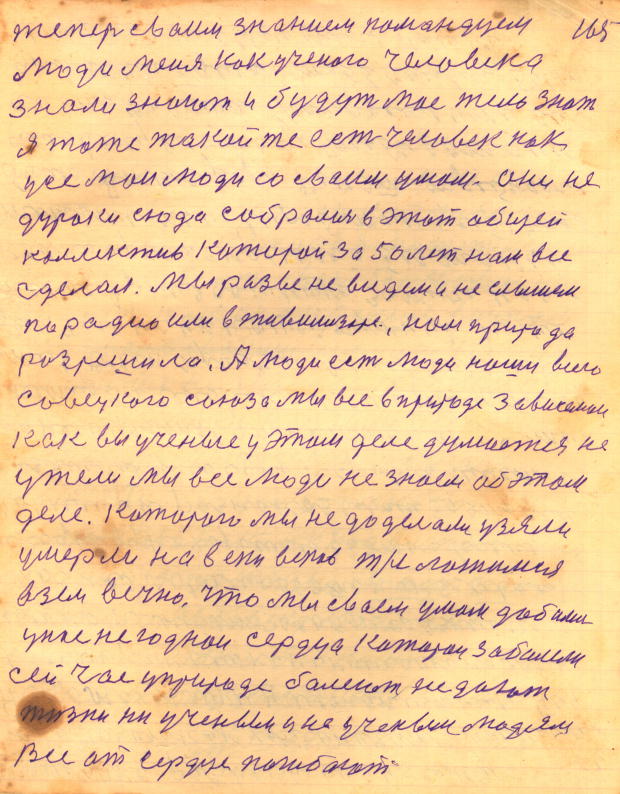 тепер сваим знанием командуем 165
люди меня как ученого человека
знали знают и будут мое тело знат
я тоже такой те ест человек как
усе мои люди со сваим умом. они не
дураки сюда собралися в этот общей
коллектив каторой за 50 лет нам все
сделал. Мы разве не видем и не слышем
по радио или в , нам природа
розрешила. А люди ест люди наши всего
советского союза мы все в природе зависемаи
как вы ученые у этом деле думаетя не
ужели мы все люди не знаем об этом
деле. Каторого мы не доделали узяли
умерли на веки веков ложимся
взем вечно. Что мы сваем умом добили
унас негоднои сердца каторои заболели
сей час уприроде болеют не дают
жизни ни ученым и не ученым людям
Все от сердце погибают